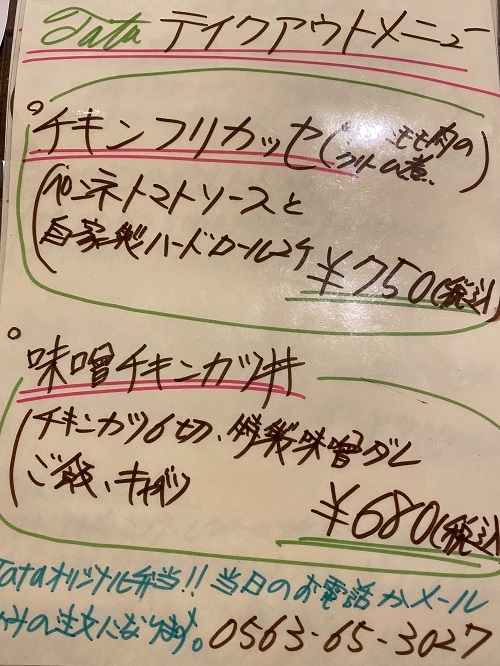 Tata テイクアウトメニュー
チキンフリカッセ(もも肉の
クリーム煮)
(ペンネトマトソースと
自家製ハードロール2ケ
¥750(税込)
味噌チキンカツ丼
(チキンカツ6切、特製味噌ダレ
ご飯、キャベツ)
¥680(税込)
Tataオリジナル弁当!!当日のお電話かメール
のみの注文になります。0563-65-3027